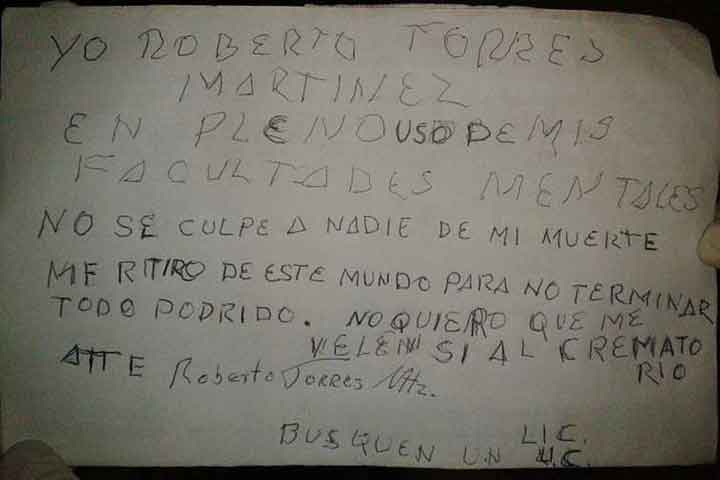 YO ROBERTO TORRES
MARTINEZ
EN PLENO USO DE MIS
FACULTADES MENTALES
NO SE CULPE A NADIE DE MI MUERTE
ME RITIRO DE ESTE MUNDO PARA NO TERMINAR
TODO PODRIDO. NO QUIERO QUE ME
VELEN SI AL CREMATO
RIO
ATTE Roberto Torres Mtz.
LIC.
BUSQUEN UN